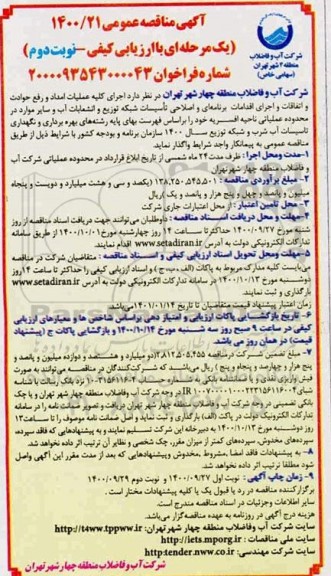 آگهی مناقصه عمومی ۱۴۰۰/۲۱
(یک مرحله‌ای با ارزیابی کیفی - نوبت دوم)
شماره فراخوان ۲۰۰۰۰۹۳۵۴۳۰۰۰۰۴۳
شرکت آب و فاضلاب
منطقه ۴ شهر تهران
(سهامی خاص)
شرکت آب و فاضلاب منطقه چهار شهر تهران در نظر دارد اجرای کلیه عملیات امداد و رفع حوادث
و اتفاقات و اجرای اقدامات برنامه‌ای و اصلاحی تأسیسات شبکه توزیع و انشعابات آب و سایر موارد در
محدوده عملیاتی ناحیه افسریه خود را براساس فهرست بهای پایه رشته‌های بهره برداری و نگهداری
تاسیسات آب شرب و شبکه توزیع سال ۱۴۰۰ سازمان برنامه و بودجه کشور با شرایط ذیل از طریق
مناقصه عمومی به پیمانکار واجد شرایط واگذار نماید.
۱-مدت ومحل اجرا: ظرف مدت ۲۴ ماه شمسی از تاریخ ابلاغ قرارداد در محدوده عملیاتی شرکت آب
و فاضلاب منطقه چهار شهر تهران
۲- مبلغ برآوردی مناقصه: ۱۳۸,۲۵۰,۵۴۵,۵۰۱ (یکصد و سی و هشت میلیارد و دویست و پنجاه
میلیون و پانصد و چهل و پنج هزار و پانصد و یک) ریال
۳- محل تامین اعتبار: از محل اعتبارات جاری شرکت
۴-مهلت ومحل دریافت اسناد مناقصه: داوطلبان می‌توانند جهت دریافت اسناد مناقصه از روز
شنبه مورخ ۱۴۰۰/۰۹/۲۷ حداکثر تا ساعت ۱۴ روز چهارشنبه مورخ ۱۴۰۰/۱۰/۰۱ از طریق سامانه
تدارکات الکترونیکی دولت به آدرس www.setadiran.ir اقدام نمایند.
۵-مهلت ومحل تحویل اسناد ارزیابی کیفی و اسناد مناقصه: متقاضیان شرکت در مناقصه
می‌بایست کلیه مدارک مربوط به پاکات (الف،ب،ج) و اسناد ارزیابی کیفی را حداکثر تا ساعت ۱۴ روز
دوشنبه مورخ ۱۴۰۰/۱۰/۱۳ در سامانه تدارکات الکترونیکی دولت به آدرس www.setadiran.ir
بارگذاری و ثبت نمایند.
زمان اعتبار پیشنهاد قیمت متقاضیان تا تاریخ ۱۴۰۱/۰۱/۱۴ می‌باشد.
۶- تاریخ بازگشایی پاکات ارزیابی و امتیاز دهی براساس شاخص ها و معیارهای ارزیابی
کیفی در ساعت ۹ صبح روز سه شنبه مورخ ۱۴۰۰/۱۰/۱۴ و بازگشایی پاکات ج (پیشنهاد
قیمت) در همان روز می باشد.
۷- مبلغ تضمین شرکت در مناقصه ۲,۸۱۲,۵۰۵,۴۵۵ (دو میلیارد و هشتصد و دوازده میلیون و پانصد و
پنج هزار و چهارصد و پنجاه و پنج) ریال می‌باشد
بانکی تضمینی در وجه شرکت آب و فاضلاب منطقه چهار شهر تهران
دوشنبه مورخ ۱۴۰۰/۱۰/۱۳ به دبیرخانه این شرکت تسلیم نمایند و به پیشنهادهایی که فاقد سپرده،
سپرده‌های مخدوش، سپرده‌های کمتر از میزان مقرر، چک شخصی و نظایر آن ترتیب اثر داده نخواهد شد.
۸- به پیشنهادات فاقد امضا، مشروط، مخدوش و پیشنهادهایی که بعد از مدت مقرر این آگهی واصل
شود مطلقا ترتیب اثر داده نخواهد شد.
۹- زمان چاپ آگهی: نوبت اول ۱۴۰۰/۰۹/۲۷ و نوبت دوم ۱۴۰۰/۰۹/۲۹
برگزارکننده مناقصه در رد یا قبول یک یا کلیه پیشنهادات مختار است.
سایر اطلاعات و جزئیات در اسناد مناقصه مندرج است.
هزینه درج آگهی در روزنامه به عهده مناقصه‌گزار می‌باشد.
سایت شرکت آب و فاضلاب منطقه چهار شهر تهران: http://t4ww.tpww.ir
سایت ملی مناقصات: http://iets.mporg.ir
سایت شرکت مهندسی: http:tender.nww.co.ir
شرکت آب و فاضلاب منطقه چهار شهر تهران